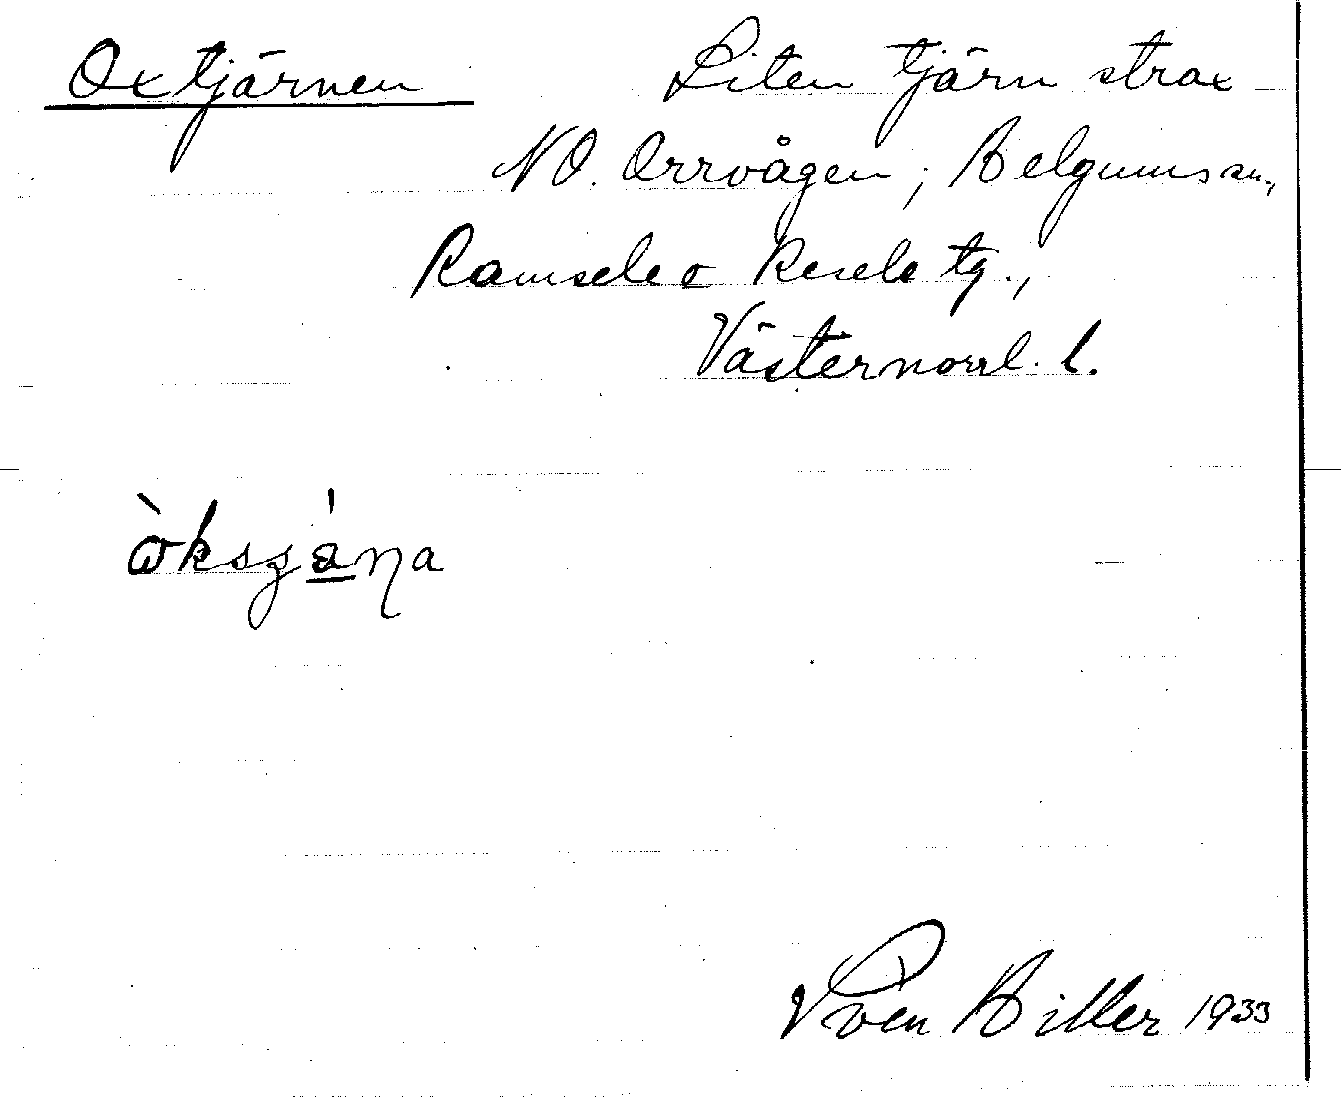 Oxtjärnen Liten tjärn strax
NO. Orrvågen; Helgumss sn.,
Ramsele o Resele tg.,
Västernorrl. l.
òksȷána
Sven Hiller 1933